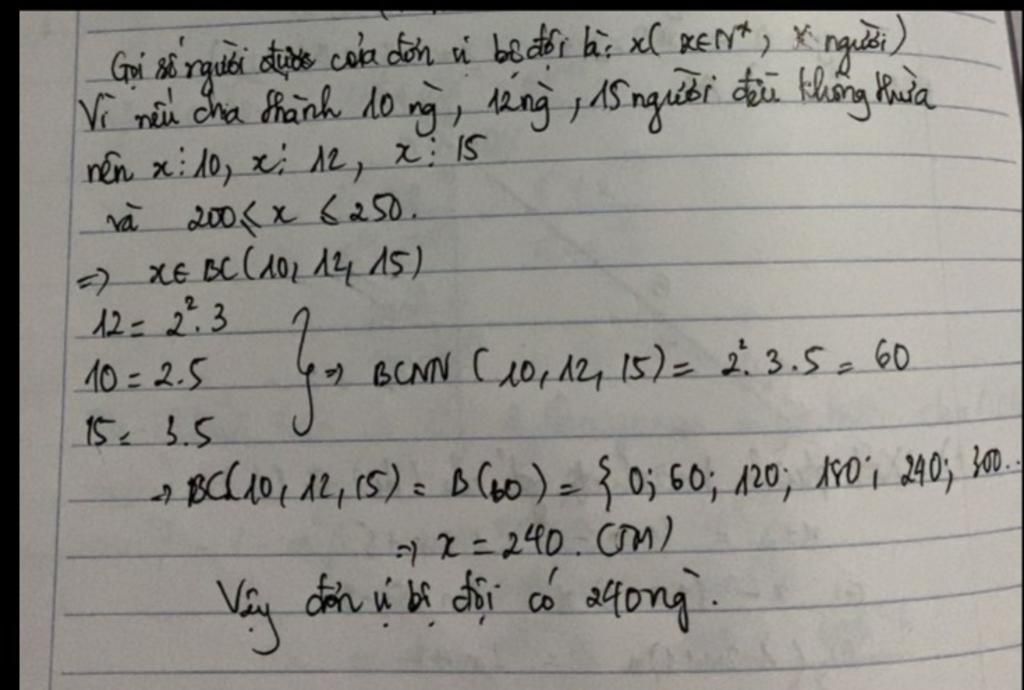 Gọi số người được của đơn vị bộ đội là: x( x∈N*, x người)
Vì nếu chia thành 10 ng̀, 12ng̀, 15 người đều không thừa
nên x⋮10, x⋮ 12, x⋮ 15
và 200 ≤ x ≤ 250.
=> x∈ BC(10, 12, 15)
12 = 2².3
10 = 2.5 } => BCNN (10, 12, 15) = 2².3.5 = 60
15 = 3.5
→ BC(10, 12, 15) = B(60) = { 0; 60; 120; 180; 240; 300...
=> x = 240. (TM)
Vậy đơn vị bộ đội có 240ng̀.